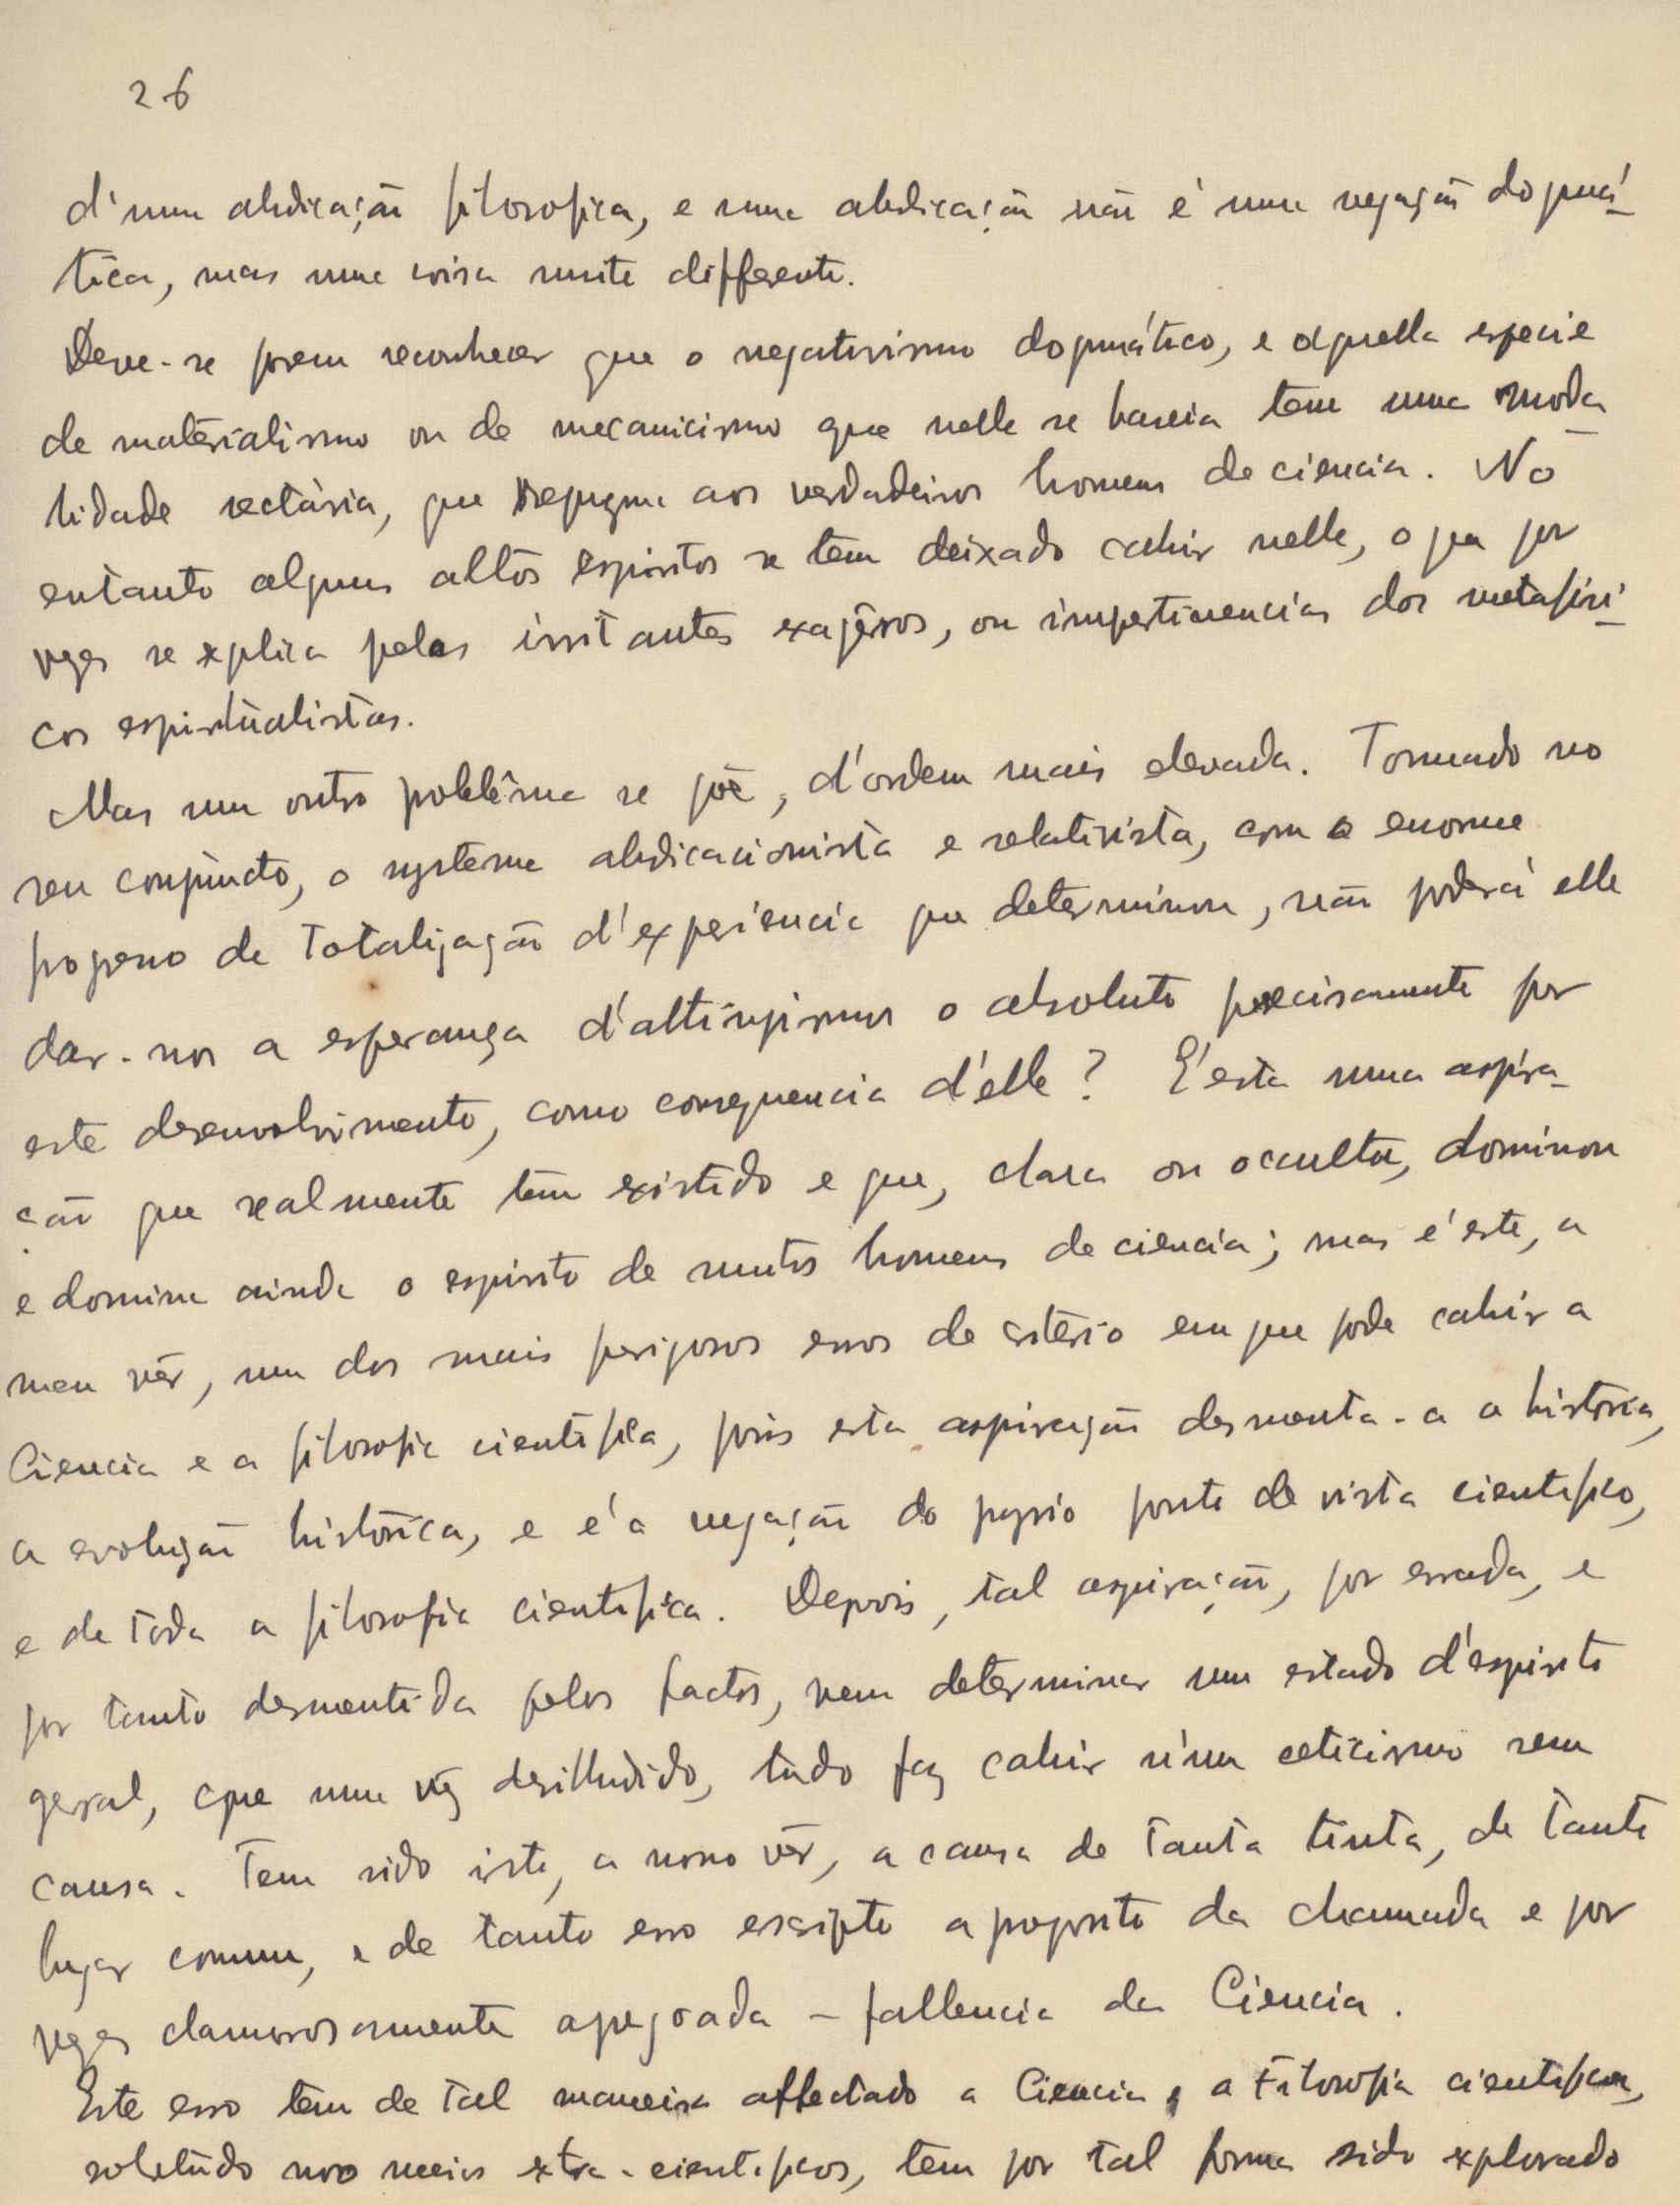 26
d'uma abdicação filosofica, e uma abdicação não é uma negação dogmá-
tica, mas uma coisa muito differente.
Deve-se porem reconhecer que o negativismo dogmático, e aquella especie
de materialismo ou de mecanicismo que nelle se baseia tem uma moda-
lidade sectária, que repugna aos verdadeiros homens de ciencia. No
entanto alguns altos espiritos se têm deixado cahir nelle, o que por
vezes se explica pelos irritantes exagêros, ou impertinencias dos metafisi-
cos espiritualistas.
Mas um outro problêma se põe, d'ordem mais elevada. Tomado no
seu conjuncto, o systema abdicacionista e relativista, com o enorme
progresso de totalização d'experiencia que determinou, não poderá elle
dar-nos a esperança d'attingirmos o absoluto precisamente por
este desenvolvimento, como consequencia d'elle? É esta uma aspira-
ção que realmente tem existido e que, clara ou occulta, dominou
e domina ainda o espirito de muitos homens de ciencia; mas é este, a
meu vêr, um dos mais perigosos erros de critério em que pode cahir a
Ciencia e a filosofia cientifica, pois esta aspiração desmenta-a a história,
a evolução histórica, e é a negação do proprio ponto de vista cientifico,
e de toda a filosofia cientifica. Depois, tal aspiração, por errada, e
por tanto desmentida pelos factos, vem determinar um estado d'espirito
geral, que uma vêz desilludido, tudo faz cahir n'um ceticismo sem
causa. Tem sido isto, a nosso vêr, a causa de tanta tinta, de tanto
lugar commum, e de tanto erro escripto a proposito da chamada e por
vezes clamorosamente apregoada – fallencia da Ciencia.
Este erro tem de tal maneira affectado a Ciencia e a Filosofia cientifica,
sobretudo nos meios extra-cientificos, tem por tal forma sido explorado